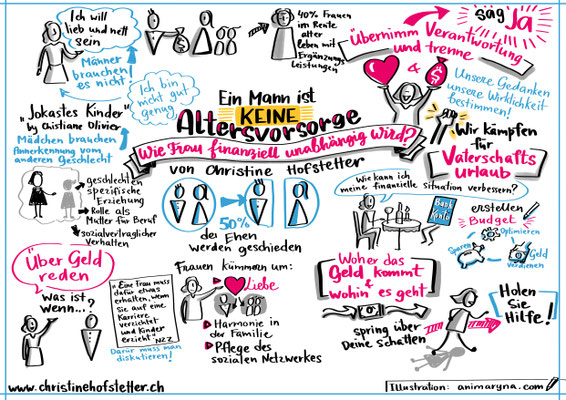 Ich will
lieb und nett
sein
Männer
brauchen
es nicht!
40% Frauen
im Rente
alter
leben mit
Ergänzungs
leistungen
sag Ja
Übernimm Verantwortung
und trenne
&
$
Unsere Gedanken
unsere Wirklichkeit
bestimmen!
Ich bin
nicht gut
genug
"Jokastes Kinder"
by Christiane Olivier
Mädchen brauchen
Annerkennung vom
anderen Geschlecht
Ein Mann ist
KEINE
Altersvorsorge
Wie Frau finanziell unabhängig wird?
von Christine Hofstetter
Wir kämpfen
für
Vaterschafts
urlaub
geschlechten
spezifische
Erziehung
Rolle als
Mutter für Beruf
sozialvertraglicher
Verhalten
50%
der Ehen
werden geschieden
Wie kann ich
meine finanzielle Situation verbessern?
Bank
Konto
erstellen
Budget
Optimieren
Sparen
Geld
verdienen
"Über Geld
reden
was ist
wenn...?
"Eine Frau muss
dafür etwas
erhalten, wenn
sie auf eine
Karriere
verzichtet
und Kinder
erzieht"
NZZ
Darür muss man
diskutieren!
Frauen kümmern um:
Liebe
Harmonie in
der Familie
Pflege des
sozialen Netzwerkes
Woher das
Geld kommt
&
wohin es geht
spring über
Deine Schatten
Holen
Sie
Hilfe!
www.christinehofstetter.ch
Illustration: animaryna.com